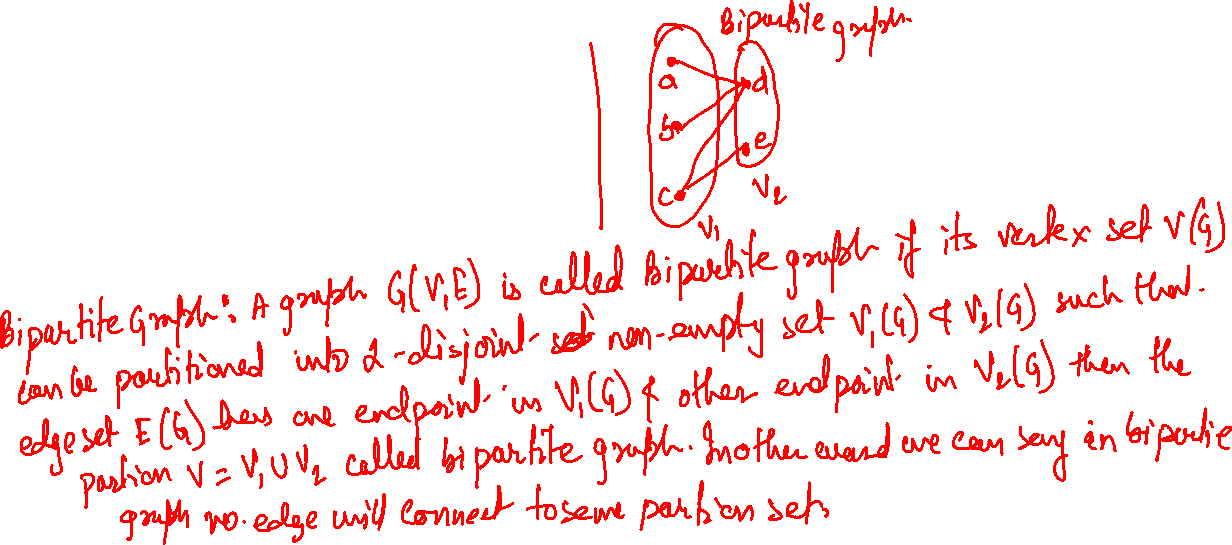 Bipartite graph.
a
d
b
e
c
V₂
V₁
Bipartite Graph: A graph G(V,E) is called Bipartite graph if its vertex set V(G)
can be partitioned into 2-disjoint non-empty set V₁(G) & V₂(G) such that.
edge set E(G) has one endpoint in V₁(G) & other endpoint in V₂(G) then the
partion V = V₁ ∪ V₂ called bipartite graph. In other word we can say in bipartie
graph no. edge will connect to same partion sets